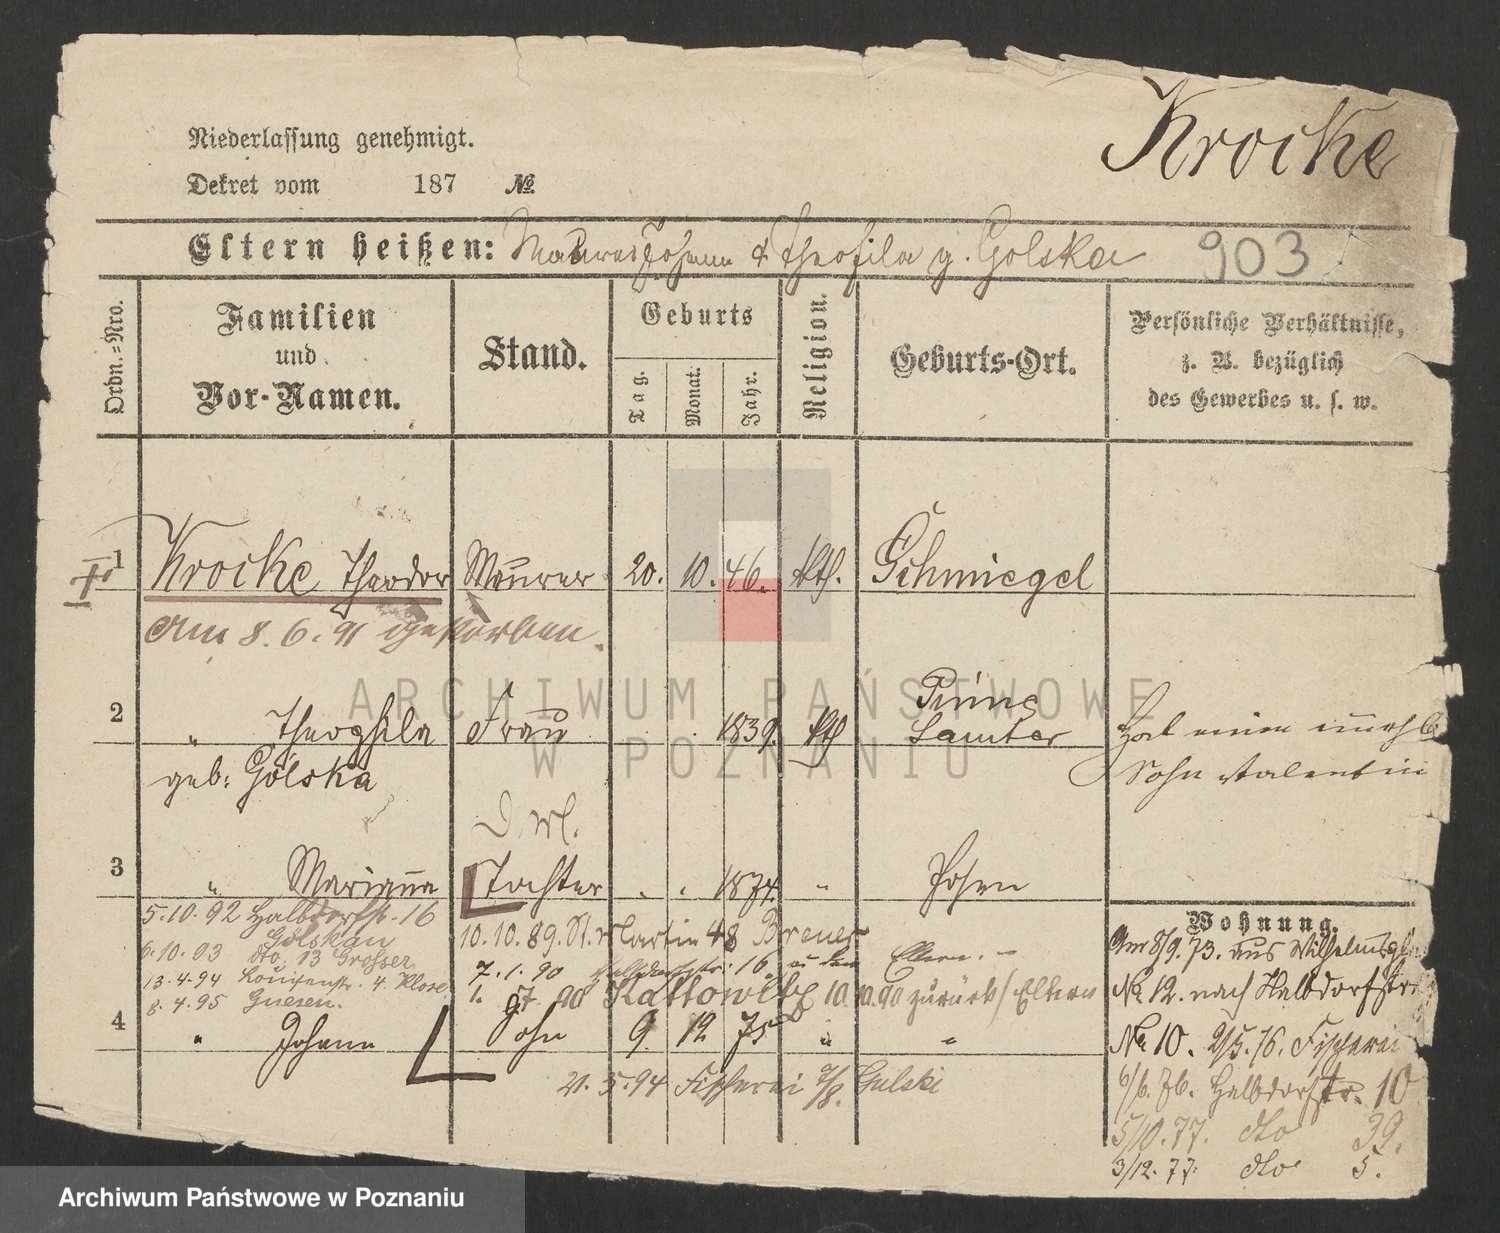 Krocke
Niederlassung genehmigt.
Dekret vom 187 №
Eltern heißen: Johann & Theofila g. Golska
903
Ordn.-Nro.
Familien
und
Vor-Namen.
Stand.
Geburts
Tag.
Monat.
Jahr.
Religion.
Geburts-Ort.
Persönliche Verhältnisse,
z. B. bezüglich
des Gewerbes u. s. w.
1 Krocke Theodor Maurer 20. 10. 46. kth. Schmiegel
Am 8. 6. 91 gestorben.
2 " Theophila Frau 1839. kth Pinne
Samter
geb: Golska
Hat einen unehl
Sohn Valentin
D. rel.
3 " Marianna Tochter " " 1874. " Posen
5.10.92 Halbdorfst. 16
Golskau
6.10.93 dto. 13 Grosser
13.4.94 Louisenstr. 4. Klose
8.4.95 Gnesen.
10.10.89. St. Martin 48 Breuer
7.1.90 Halbdorfstr. 16 zu den Eltern. -
1. 97. 90 Kattowitz 10.10.90 zurück / Eltern
4 " Johann Sohn 9 12 75 " "
21.5.94 Fischerei 7/8. Gulski
Wohnung.
Am 8/9. 73. aus Wilhelmspl
No 12. nach Halbdorfstr
No 10. 2/5. 76. Fischerei
6/6. 76. Halbdorfstr. 10
5/10. 77. dto 39.
3/12. 77. dto 5.
ARCHIWUM PAŃSTWOWE
W POZNANIU
Archiwum Państwowe w Poznaniu